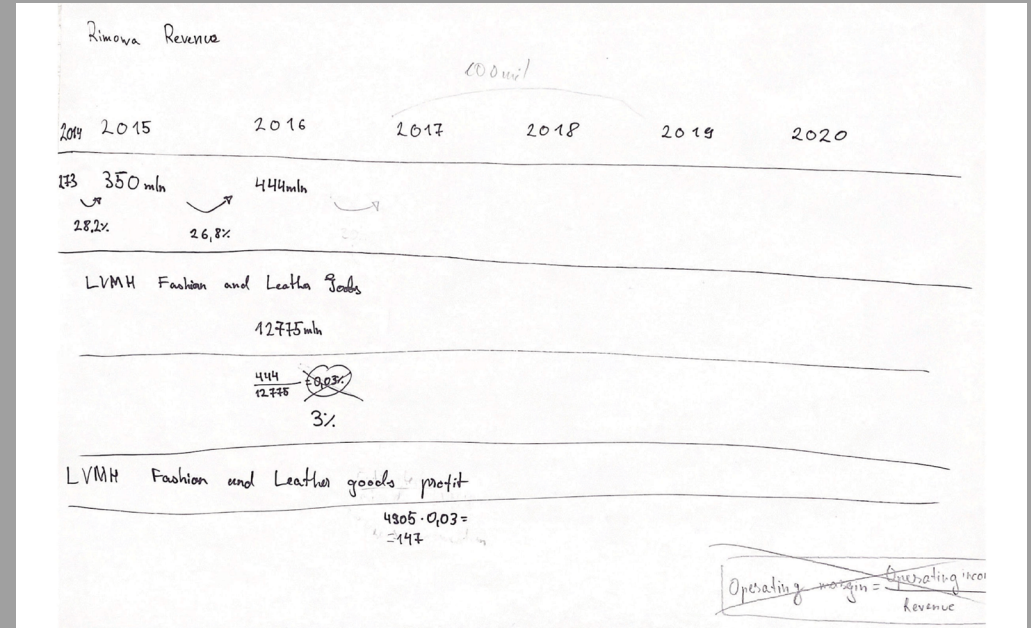 Rimowa Revenue
100 mil
2014 2015 2016 2017 2018 2019 2020
273 350 mln 444 mln
28,2% 26,8%
LVMH Fashion and Leather Goods
12775 mln
444
12775
=0,03%
3%
LVMH Fashion and Leather goods profit
4905 · 0,03 =
=147
Operating margin = Operating inco
Revenue